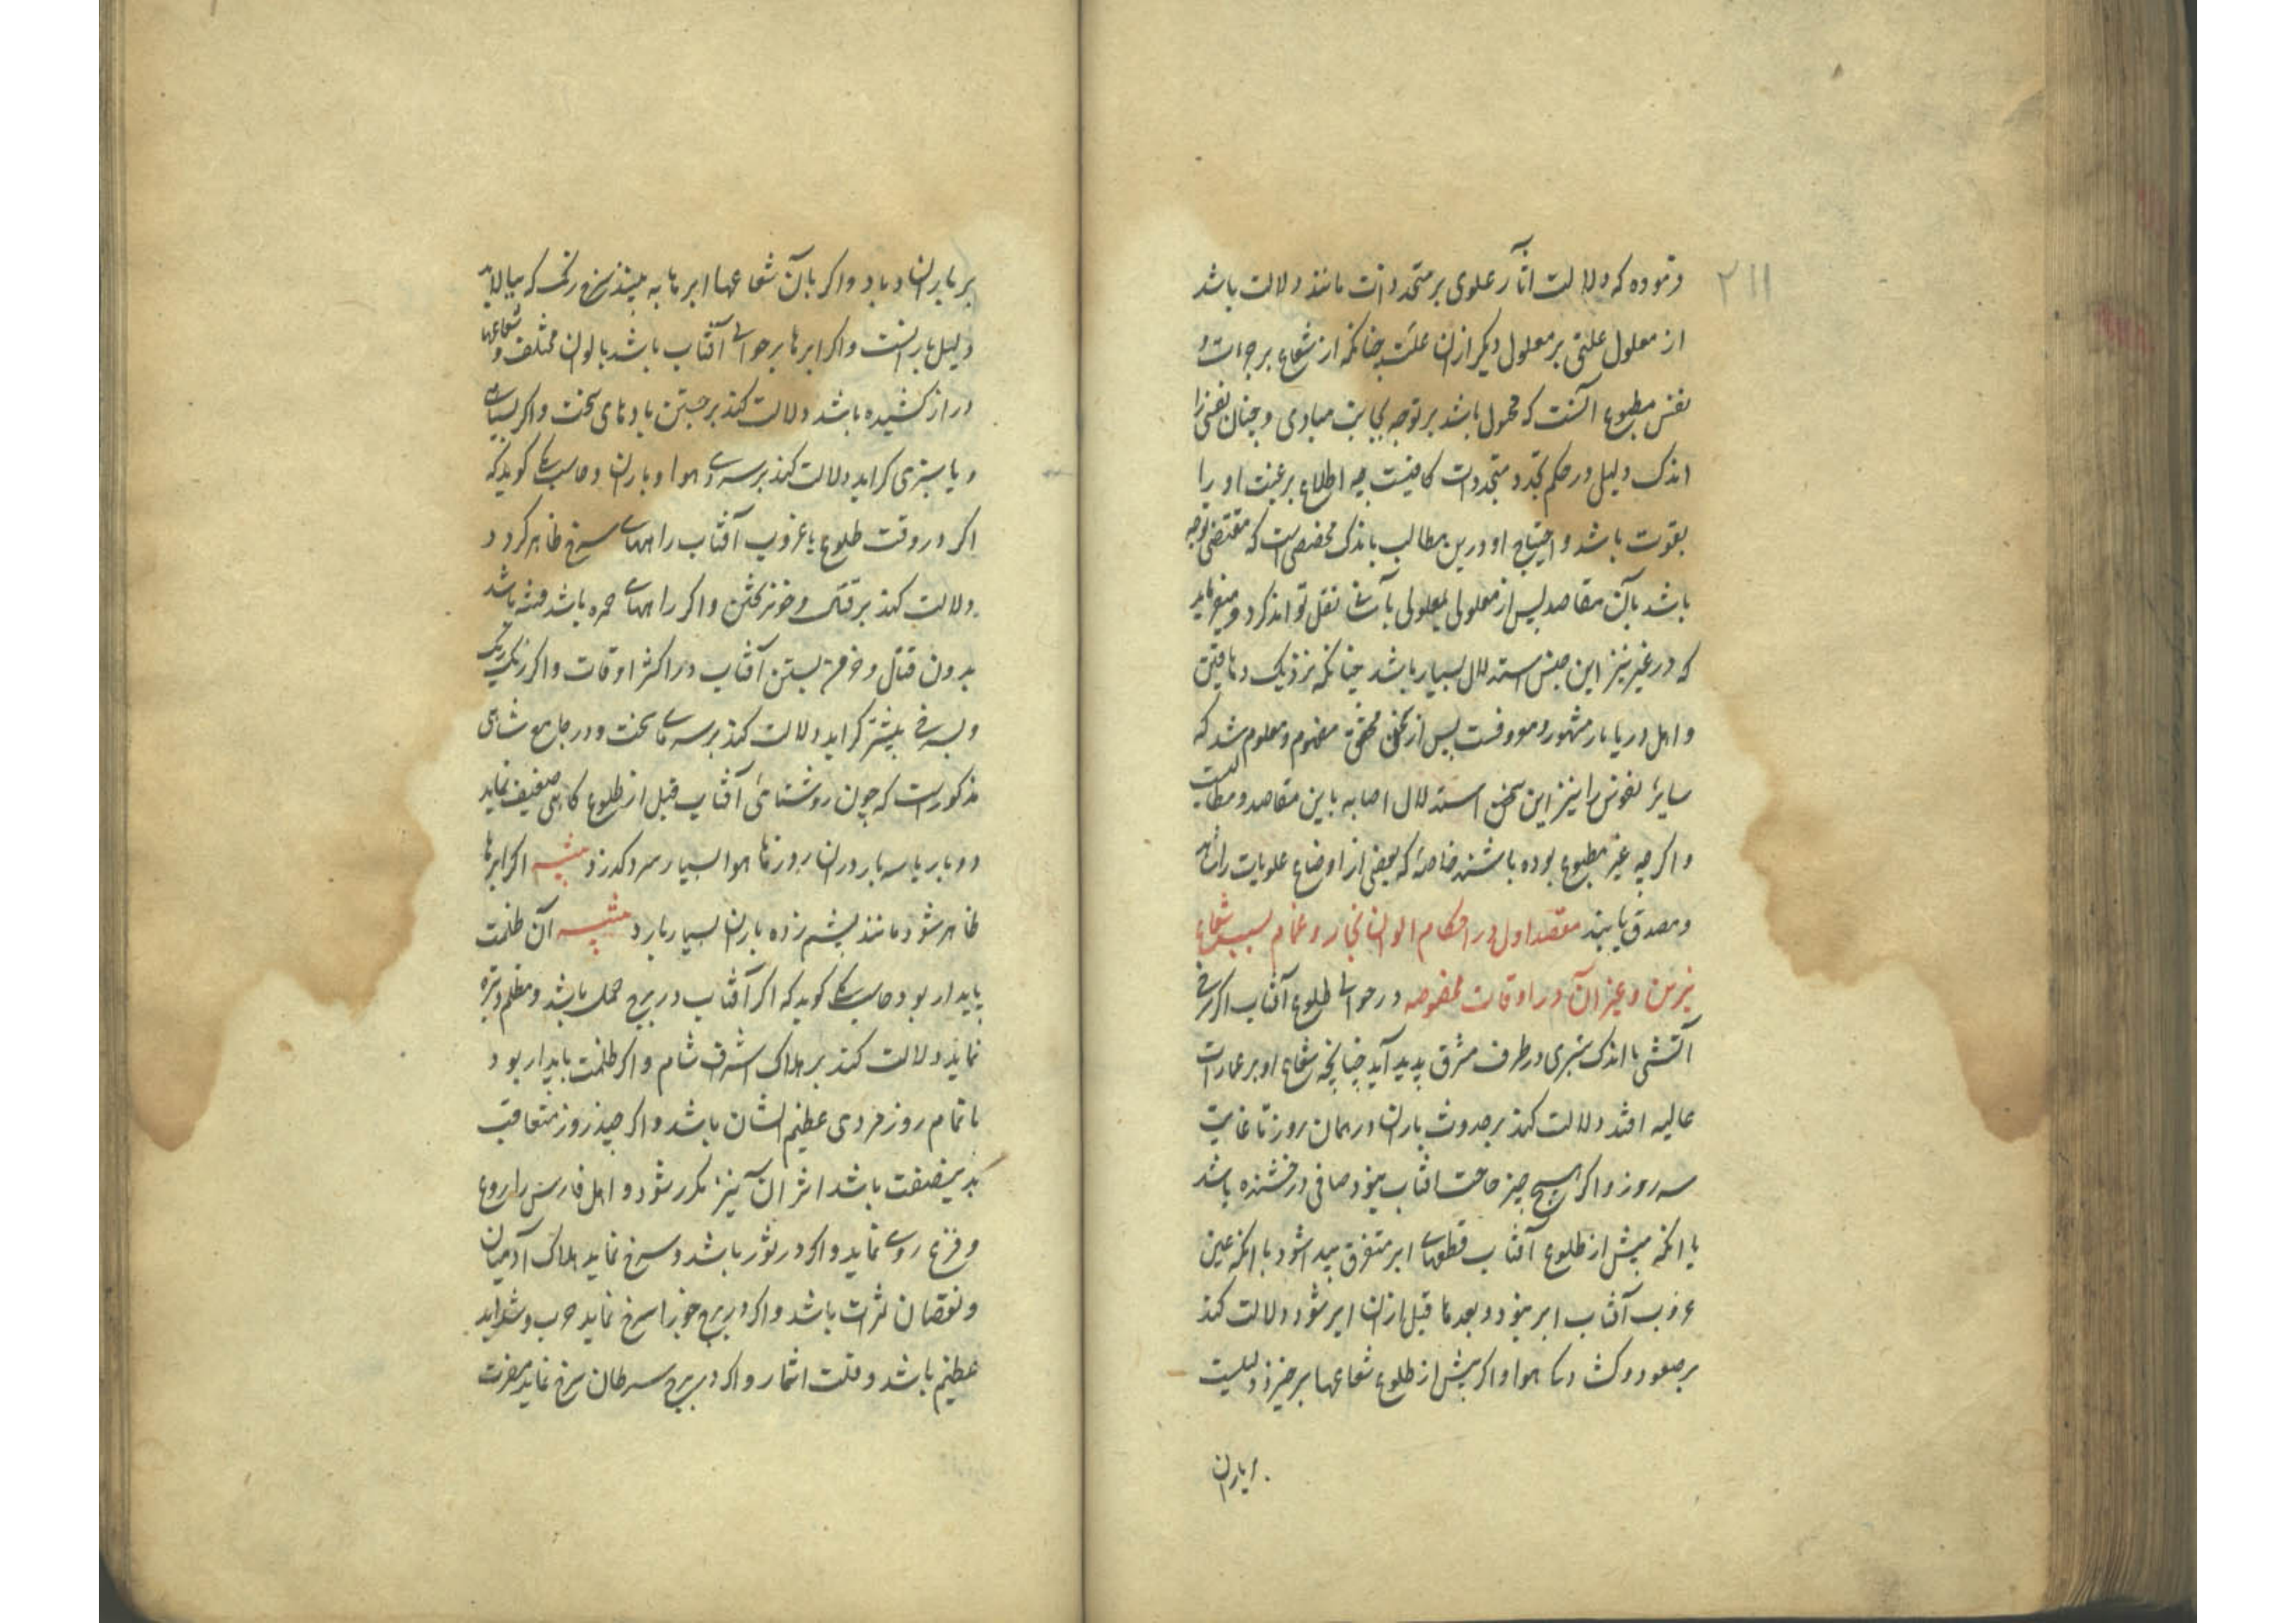 ۲۱۱
فرموده که دلالت آثار علوی بر متجددات مانند دلالت باشد
از معلول علتی بر معلول دیگر ازان علت چنانکه از شعاع بر
نفس مطبوع آنست که مجبول باشد بر توجه بجانب مبادی و چنان نفس را
اندک دلیل در حکم تجدد متجددات کافیست چه اطلاع بر غیب او را
بقوت باشد و احتیاج او درین مطالب باندک مخصصی است که مقتضی توجه
باشد بآن مقاصد پس از معلولی بمعلولی بآسانی نقل تواند کرد و
که در غیر نیز این جنس استدلال بسیار باشد چنانکه نزدیک دهاقین
و اهل دریا بار مشهور و معروفست پس از سخن محقق مفهوم و معلوم شد که
سایر نفوس را نیز ازین سخن استدلال اصابه باین مقاصد و مطالب هست
و اگرچه غیر مطبوع بوده باشند خاصه که بعضی از اوضاع علویات را
و مصدق یابند مقصد اول در احکام الوان بخار و غمام بسبب شعاع
نیرین و غیر آن در اوقات مخصوصه در حوالی طلوع آفتاب اگر سرخی
آتشی با اندک تیری در طرف مشرق پدید آید چنانچه شعاع او بر عمارات
عالیه افتد دلالت کند بر حدوث باران در همان روز تا غایت
سه روز و اگر هیچ چیز حاجب افتاب نبود و صافی و درخشنده باشد
یا انکه پیش از طلوع آفتاب قطعهای ابر متفرق پیدا شود یا انکه عین
غروب آفتاب ابر نبود و بعد یا قبل ازان ابر شود دلالت کند
بر صعود و هوا و اگر پیش از طلوع شعاعها بر خیزد دلیلست
بر باران
بر باران و باد و اگر بآن شعاعها ابرها به بینند سرخ رنگ که ببالا بر
دلیل بارانست و اگر ابرها بر حوالی آفتاب باشد بالوان مختلف و شعاعها
دراز کشیده باشد دلالت کند بر جستن بادهای سخت و اگر بسیاهی
و یا سبزی گراید دلالت کند بر سردی هوا و باران و جاماسب گوید که
اگر در وقت طلوع یا غروب آفتاب راههای سرخ ظاهر گردد
دلالت کند بر قتل و خون ریختن و اگر راههای حمره باشد فتنه باشد
بدون قتال و خرمن بستن آفتاب در اکثر اوقات و اگر رنگ برنگ
و بسرخی بیشتر گراید دلالت کند بر سرمای سخت و در جامع شاهی
مذکور است که چون روشنائی آفتاب قبل از طلوع گاهی ضعیف نماید
دو بار یا سه بار دران روزها هوا بسیار سرد گذرد تنبیه اگر ابرها
ظاهر شود مانند پشم زده باران بسیار بارد تنبیه آن ظلمت
پایدار بود جاماسب گوید که اگر آفتاب در برج حمل باشد و مظلم و تیره
نماید دلالت کند بر هلاک اشراف شام و اگر ظلمت پایدار بود
تا تمام روز مردی عظیم الشان باشد و اگر چند روز متعاقب
بدین صفت باشد اثر آن نیز مکرر شود و اهل فارس را روع
و فزع روی نماید و اگر در ثور باشد و سرخ نماید هلاک آدمیان
و نقصان ثمرات باشد و اگر در برج جوزا سرخ نماید حرب و شداید
عظیم باشد و قلت اثمار و اگر در برج سرطان سرخ نماید مضرت